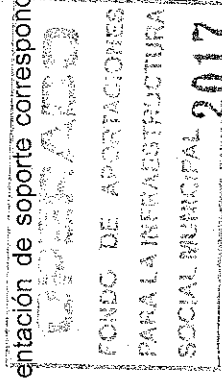 entación de soporte correspond
FONDO DE APORTACIONES
PARA LA INFRAESTRUCTURA
SOCIAL MUNICIPAL 2017